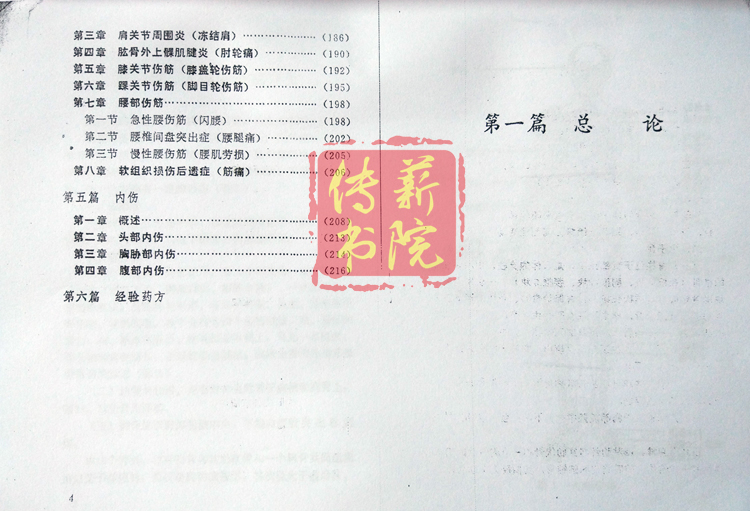 第三章 肩关节周围炎(冻结肩)……………………(186)
第四章 肱骨外上髁肌腱炎(肘轮痛)………………(190)
第五章 膝关节伤筋(膝盖轮伤筋)…………………(192)
第六章 踝关节伤筋(脚目轮伤筋)…………………(195)
第七章 腰部伤筋……………………………………(198)
第一节 急性腰伤筋(闪腰)………………………(198)
第二节 腰椎间盘突出症(腰腿痛)………………(202)
第三节 慢性腰伤筋(腰肌劳损)…………………(205)
第八章 软组织损伤后遗症(筋痛)…………………(206)
第五篇 内伤
第一章 概述…………………………………………(208)
第二章 头部内伤……………………………………(213)
第三章 胸胁部内伤…………………………………(214)
第四章 腹部内伤……………………………………(216)
第六篇 经验药方
4
第一篇 总 论
薪传
书院